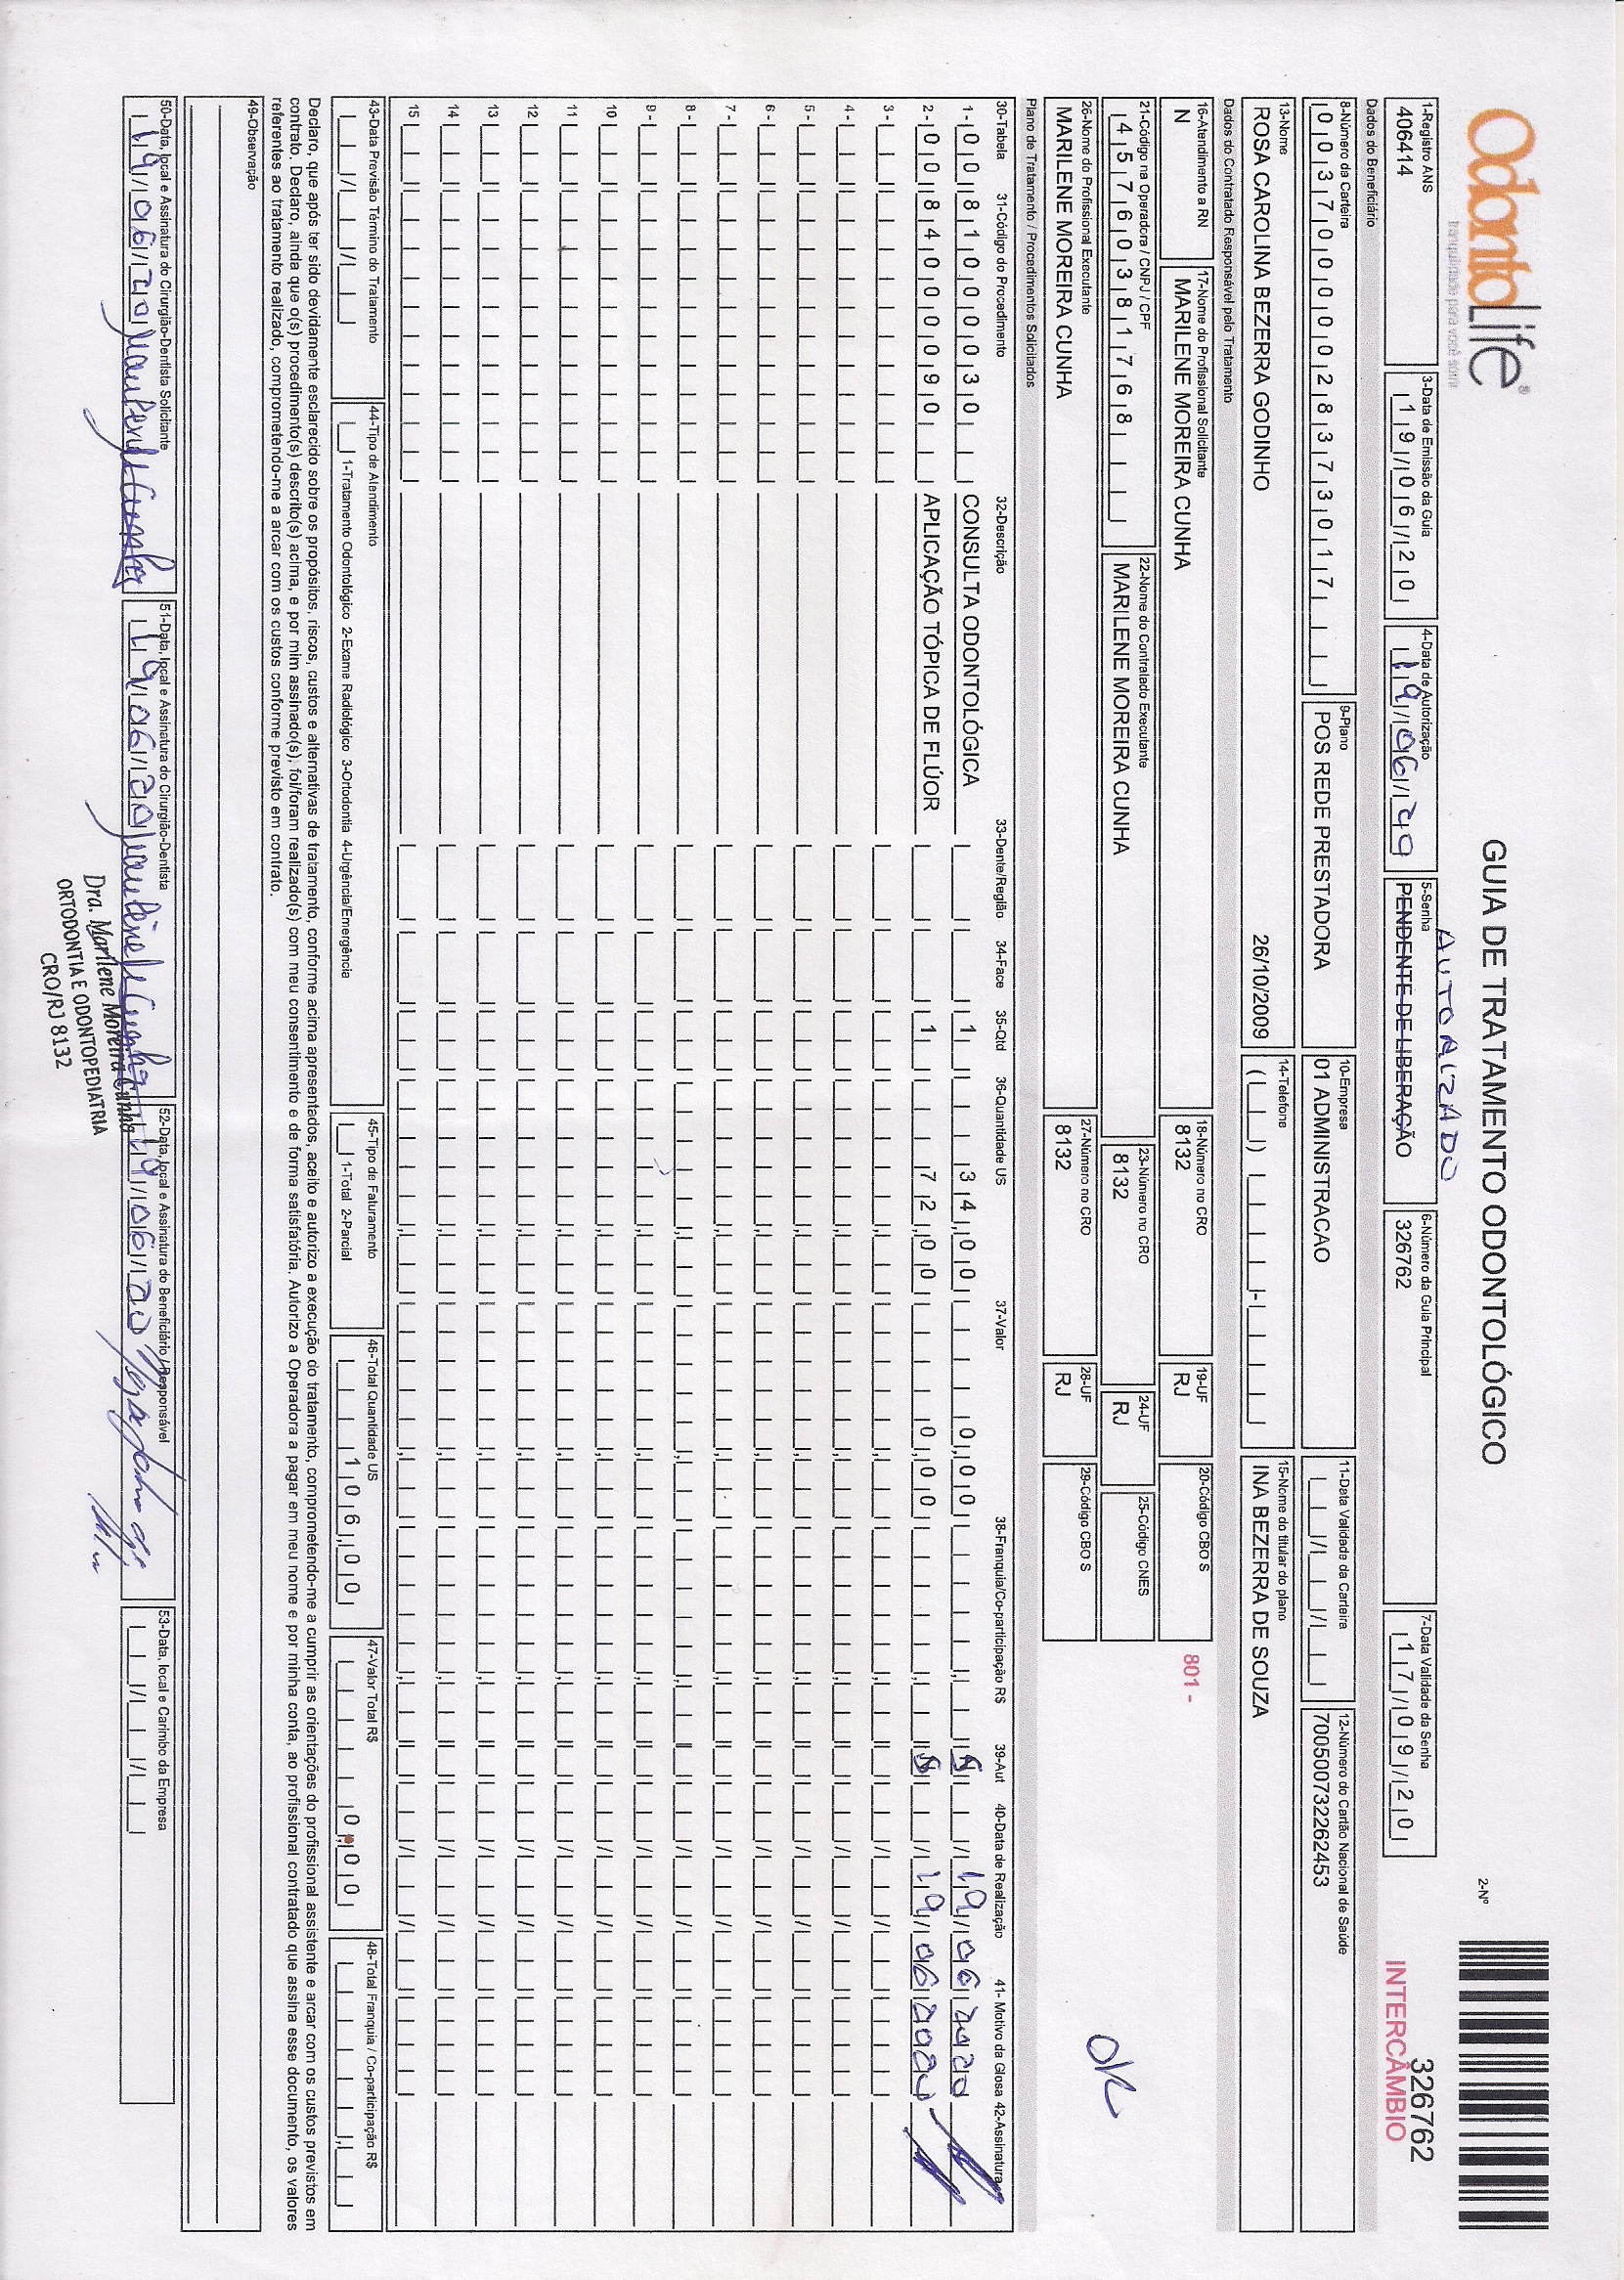 OdontoLife®
tranquilidade para você sorrir
GUIA DE TRATAMENTO ODONTOLÓGICO
2-Nº
326762
INTERCÂMBIO
AUTORIZADO
1-Registro ANS
406414
3-Data de Emissão da Guia
19/06/20
4-Data de Autorização
19/06/20
5-Senha
PENDENTE DE LIBERAÇÃO
6-Número da Guia Principal
326762
7-Data Validade da Senha
17/09/20
Dados do Beneficiário
8-Número da Carteira
00370000028373017
9-Plano
POS REDE PRESTADORA
10-Empresa
01 ADMINISTRACAO
11-Data Validade da Carteira
12-Número do Cartão Nacional de Saúde
700500732262453
13-Nome
ROSA CAROLINA BEZERRA GODINHO 26/10/2009
14-Telefone
15-Nome do titular do plano
INA BEZERRA DE SOUZA
Dados do Contratado Responsável pelo Tratamento
16-Atendimento a RN
N
17-Nome do Profissional Solicitante
MARILENE MOREIRA CUNHA
18-Número no CRO
8132
19-UF
RJ
20-Código CBO S
801 -
21-Código na Operadora / CNPJ / CPF
45760381768
22-Nome do Contratado Executante
MARILENE MOREIRA CUNHA
23-Número no CRO
8132
24-UF
RJ
25-Código CNES
26-Nome do Profissional Executante
MARILENE MOREIRA CUNHA
27-Número no CRO
8132
28-UF
RJ
29-Código CBO S
OK
Plano de Tratamento / Procedimentos Solicitados
30-Tabela 31-Código do Procedimento 32-Descrição 33-Dente/Região 34-Face 35-Qtd 36-Quantidade US 37-Valor 38-Franquia/Co-participação R$ 39-Aut 40-Data de Realização 41- Motivo da Glosa 42-Assinatura
1- 00 81000030 CONSULTA ODONTOLÓGICA 1 34,00 0,00 S 19/06/2020
2- 00 84000090 APLICAÇÃO TÓPICA DE FLÚOR 1 72,00 0,00 S 19/06/2020
3-
4-
5-
6-
7-
8-
9-
10
11
12
13
14
15
43-Data Previsão Término do Tratamento
44-Tipo de Atendimento
1-Tratamento Odontológico 2-Exame Radiológico 3-Ortodontia 4-Urgência/Emergência
45-Tipo de Faturamento
1-Total 2-Parcial
46-Total Quantidade US
106,00
47-Valor Total R$
0,00
48-Total Franquia / Co-participação R$
Declaro, que após ter sido devidamente esclarecido sobre os propósitos, riscos, custos e alternativas de tratamento, conforme acima apresentados, aceito e autorizo a execução do tratamento, comprometendo-me a cumprir as orientações do profissional assistente e arcar com os custos previstos em
contrato. Declaro, ainda que o(s) procedimento(s) descrito(s) acima, e por mim assinado(s), foi/foram realizado(s) com meu consentimento e de forma satisfatória. Autorizo a Operadora a pagar em meu nome e por minha conta, ao profissional contratado que assina esse documento, os valores
referentes ao tratamento realizado, comprometendo-me a arcar com os custos conforme previsto em contrato.
49-Observação
50-Data, local e Assinatura do Cirurgião-Dentista Solicitante
19/06/20 Marilene Cunha
51-Data, local e Assinatura do Cirurgião-Dentista
19/06/20 Marilene Cunha
52-Data, local e Assinatura do Beneficiário / Responsável
19/06/20
53-Data, local e Carimbo da Empresa
Dra. Marilene Moreira Cunha
ORTODONTIA E ODONTOPEDIATRIA
CRO/RJ 8132